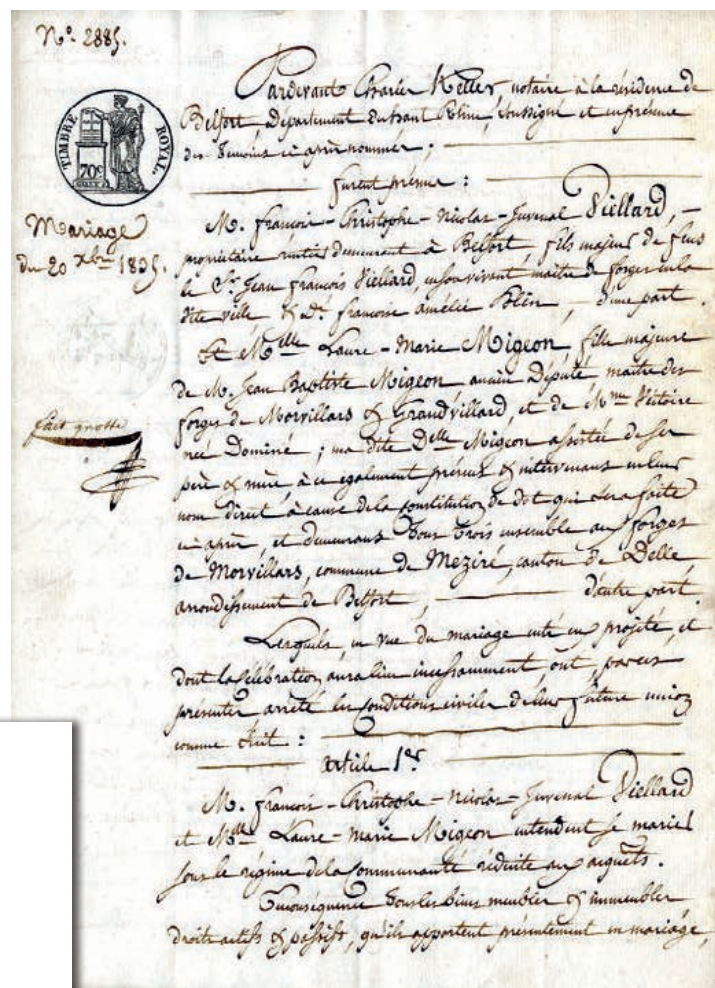 N.º 2885.
TIMBRE ROYAL.
70c
Mariage
du 20 xbre 1835.
fait grosse
Pardevant Charles Keller, notaire à la résidence de
Belfort, Département du haut Rhin, soussigné et en présence
des témoins ci après nommés ;
furent présens :
M. françois-Christophe-Nicolas-Juvenal Viellard,
propriétaire rentier demeurant à Belfort, fils majeur de feus
le Sr Jean françois Viellard, en son vivant maître de forges en la
dite ville & De françoise amélie Blin, d'une part.
Et Melle Laure-Marie Migeon, fille majeure
de M. Jean Baptiste Migeon ancien Député, maître des
forges de Morvillars & Grandvillard, et de Mme Victoire
née Dominé ; ma dite Delle Migeon assistée de ses
père & mère, à ce également présens & intervenans en leur
nom direct, à cause de la constitution de dot qui sera faite
ci après, et demeurans tous trois ensemble aux forges
de Morvillars, commune de Meziré, canton de Delle,
arrondissement de Belfort, d'autre part.
Lesquels, en vue du mariage entr'eux projeté, et
dont la célébration aura lieu incessamment, ont, par ces
présentes arrêté les conditions civiles de leur future union
comme suit :
article 1er.
M. françois-Christophe-Nicolas-Juvenal Viellard
et Melle Laure-Marie Migeon entendent se marier
sous le régime de la communauté réduite aux aquêts.
En conséquence tous les biens meubles & immeubles
droits actifs & passifs, qu'ils apportent présentement en mariage,